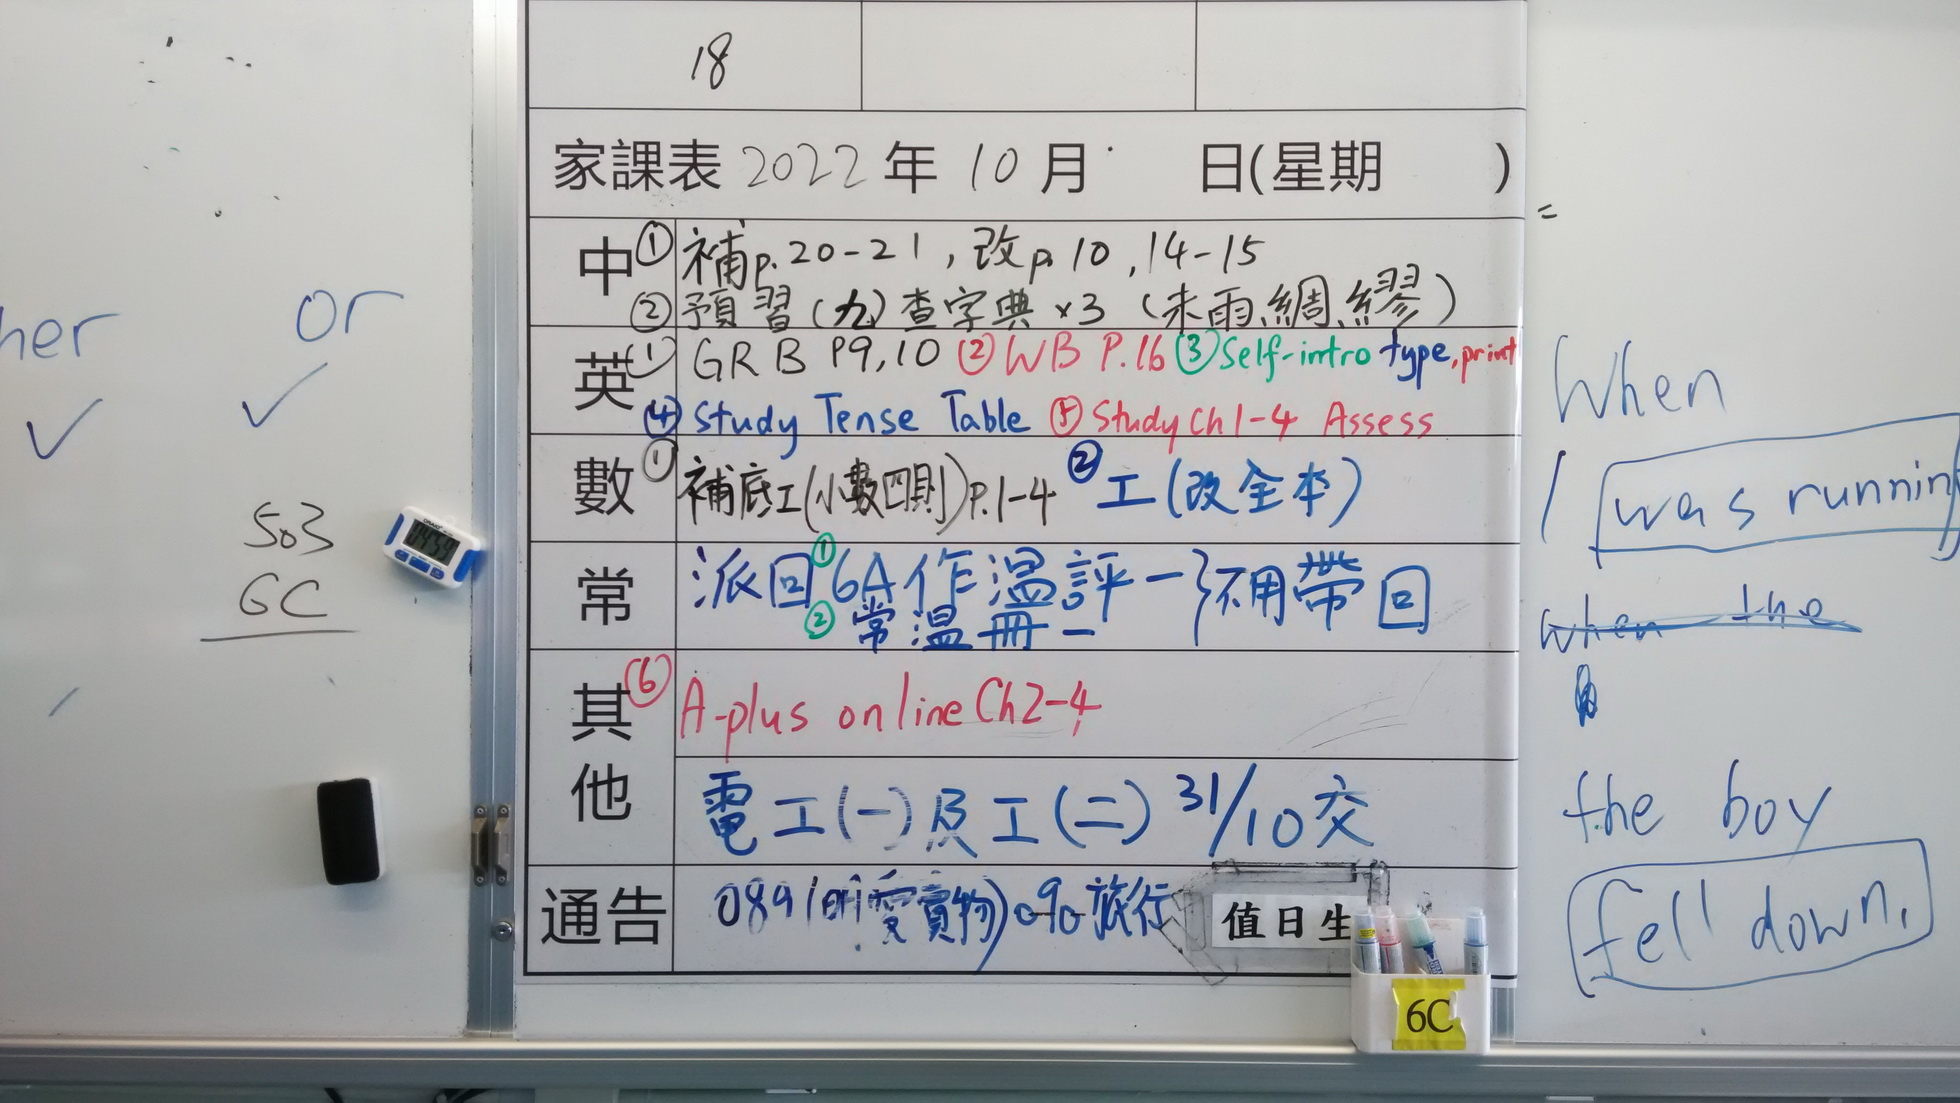 18
家課表 2022 年 10 月 日(星期 )
中 ① 補p.20-21，改p.10，14-15
② 預習(九)查字典×3（未雨綢繆）
英 ① GRB P9,10 ② WB P.16 ③ Self-intro type, print
④ Study Tense Table ⑤ Study Ch1-4 Assess
數 ① 補底工(小數四則)P.1-4 ② 工(改全本)
常 派回 ① 6A作溫評一 } 不用帶回
② 常溫冊一
其他 ⑥ A-plus online Ch2-4
電工(一)及工(二) 31/10交
通告 089(明愛賣物) 090旅行
值日生
6C
her or
503
6C
When
I was running
when the
the boy
fell down.